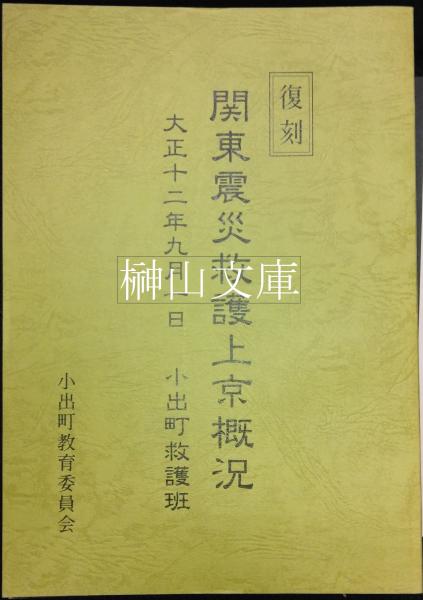 復刻
関東震災救護上京概況
大正十二年九月一日 小出町救護班
小出町教育委員会
榊山文庫